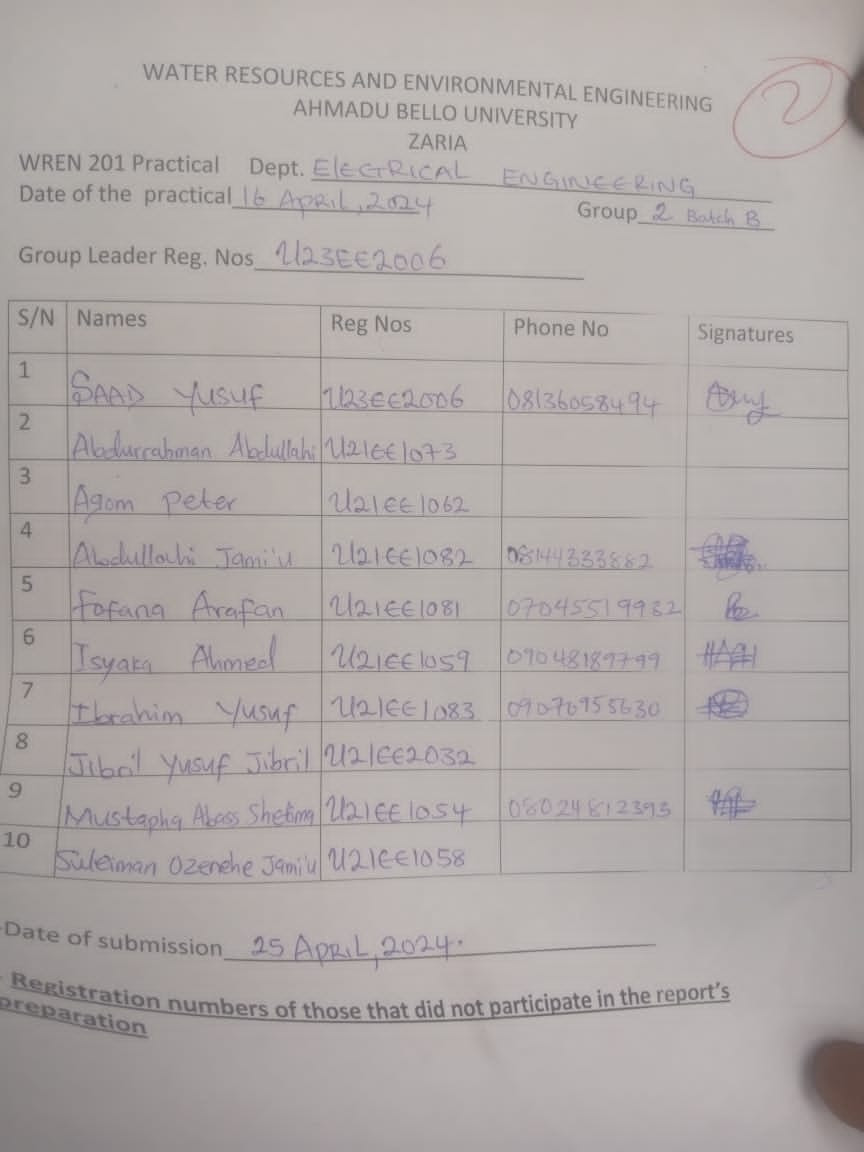 2
WATER RESOURCES AND ENVIRONMENTAL ENGINEERING
AHMADU BELLO UNIVERSITY
ZARIA
WREN 201 Practical Dept. ElECTRICAL ENGINEERING
Date of the practical 16 April, 2024
Group 2 Batch B
Group Leader Reg. Nos U23EE2006
S/N Names Reg Nos Phone No Signatures
1 SAAD Yusuf U23EE2006 08136058494
2 Abdurrahman Abdullahi U21EE1073
3 Agom Peter U21EE1062
4 Abdullahi Jami'u U21EE1082 08144333882
5 Fofana Arafan U21EE1081 07045519932
6 Isyaka Ahmed U21EE1059 09048189799
7 Ibrahim Yusuf U21EE1083 09076955630
8 Jibril Yusuf Jibril U21EE2032
9 Mustapha Abass Shetima U21EE1054 08024812393
10 Suleiman Ozenehe Jami'u U21EE1058
Date of submission 25 APRIL, 2024.
Registration numbers of those that did not participate in the report's
preparation